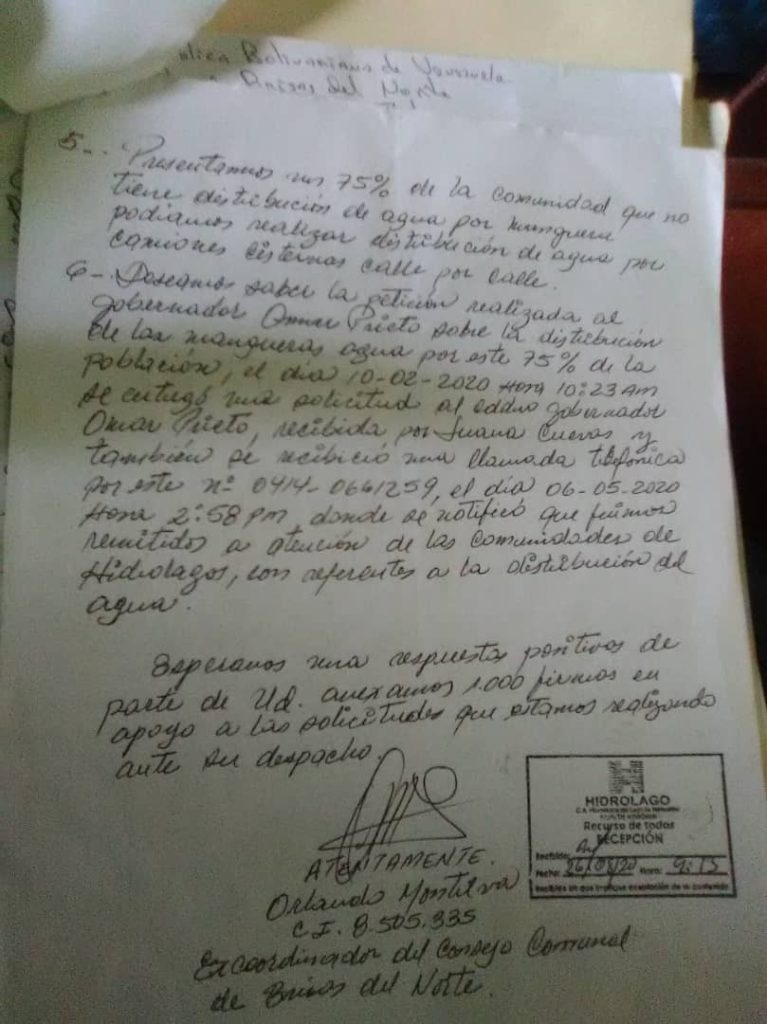 Bolivariana de Venezuela
Brisas del Norte
5-. Presentamos un 75% de la comunidad que no
tiene distribución de agua por manguera
podiamos realizar distribución de agua por
camiones cisternas calle por calle.
6-. Deseamos saber la petición realizada al
gobernador Omar Prieto sobre la distribución
de las mangueras agua por este 75% de la
población, el dia 10-02-2020 Hora 10:23 AM
se entregó una solicitud al gobernador
Omar Prieto, recibida por Juana Cuevas y
también se recibició una llamada telefonica
por este nº 0414-0661259, el día 06-05-2020
Hora 2:58 PM, donde se notificó que fuimos
remitidos a atención de las comunidades de
Hidrolagos, con referentes a la distribución del
agua.
Esperamos una respuesta positivas de
parte de Ud. anexamos 1.000 firmas en
apoyo a las solicitudes que estamos realizando
ante su despacho.
HIDROLAGO
Recurso de todos
RECEPCIÓN
Recibido:
Fecha: 26/08/20 Hora: 9:15
ATENTAMENTE.
Orlando Montilva
C.I. 8.505.335
Excoordinador del Consejo Comunal
de Brisas del Norte.